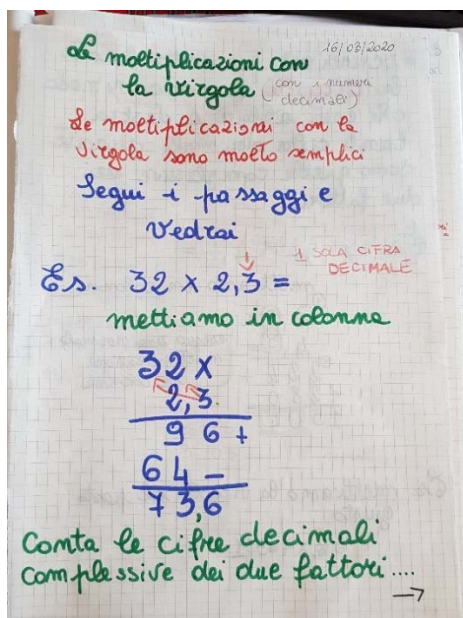 16/03/2020
Le moltiplicazioni con
la virgola (con i numeri
decimali)
Le moltiplicazioni con la
virgola sono molto semplici
Segui i passaggi e
vedrai
1 SOLA CIFRA
DECIMALE
Es. 32 x 2,3 =
mettiamo in colonna
32 x
2,3
96+
64-
73,6
Conta le cifre decimali
complessive dei due fattori....
→